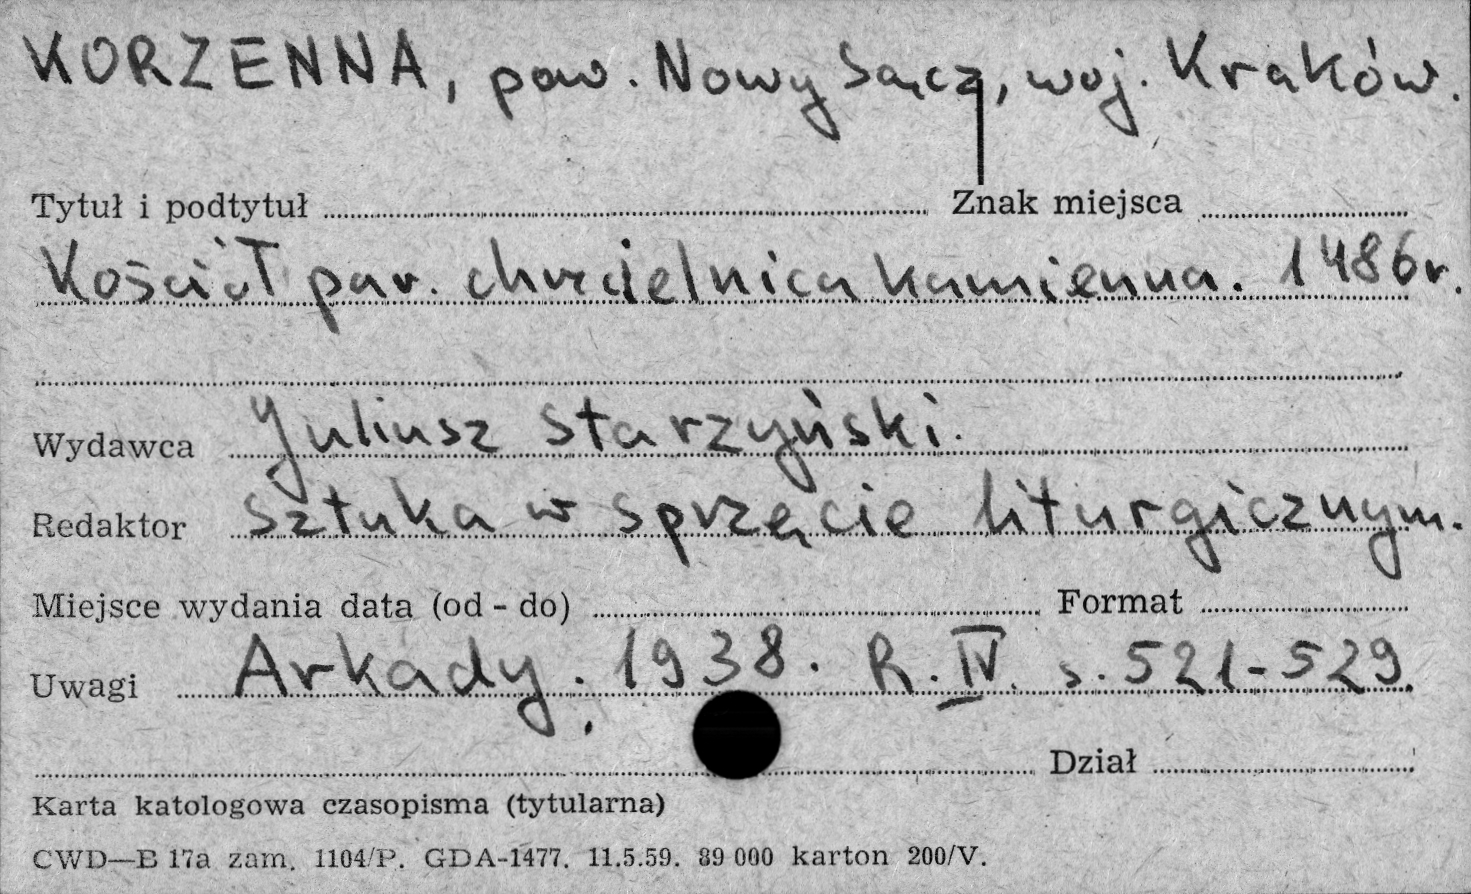 KORZENNA, pow. Nowy Sącz, woj. Kraków.
Tytuł i podtytuł Znak miejsca
Kościół par. chrzcielnica kamienna. 1486 r.
Wydawca Juliusz Starzyński.
Redaktor Sztuka w sprzęcie liturgicznym.
Miejsce wydania data (od - do) Format
Uwagi Arkady. 1938. R. IV. s. 521-529.
Dział
Karta katologowa czasopisma (tytularna)
CWD—B 17a zam. 1104/P. GDA-1477. 11.5.59. 89 000 karton 200/V.